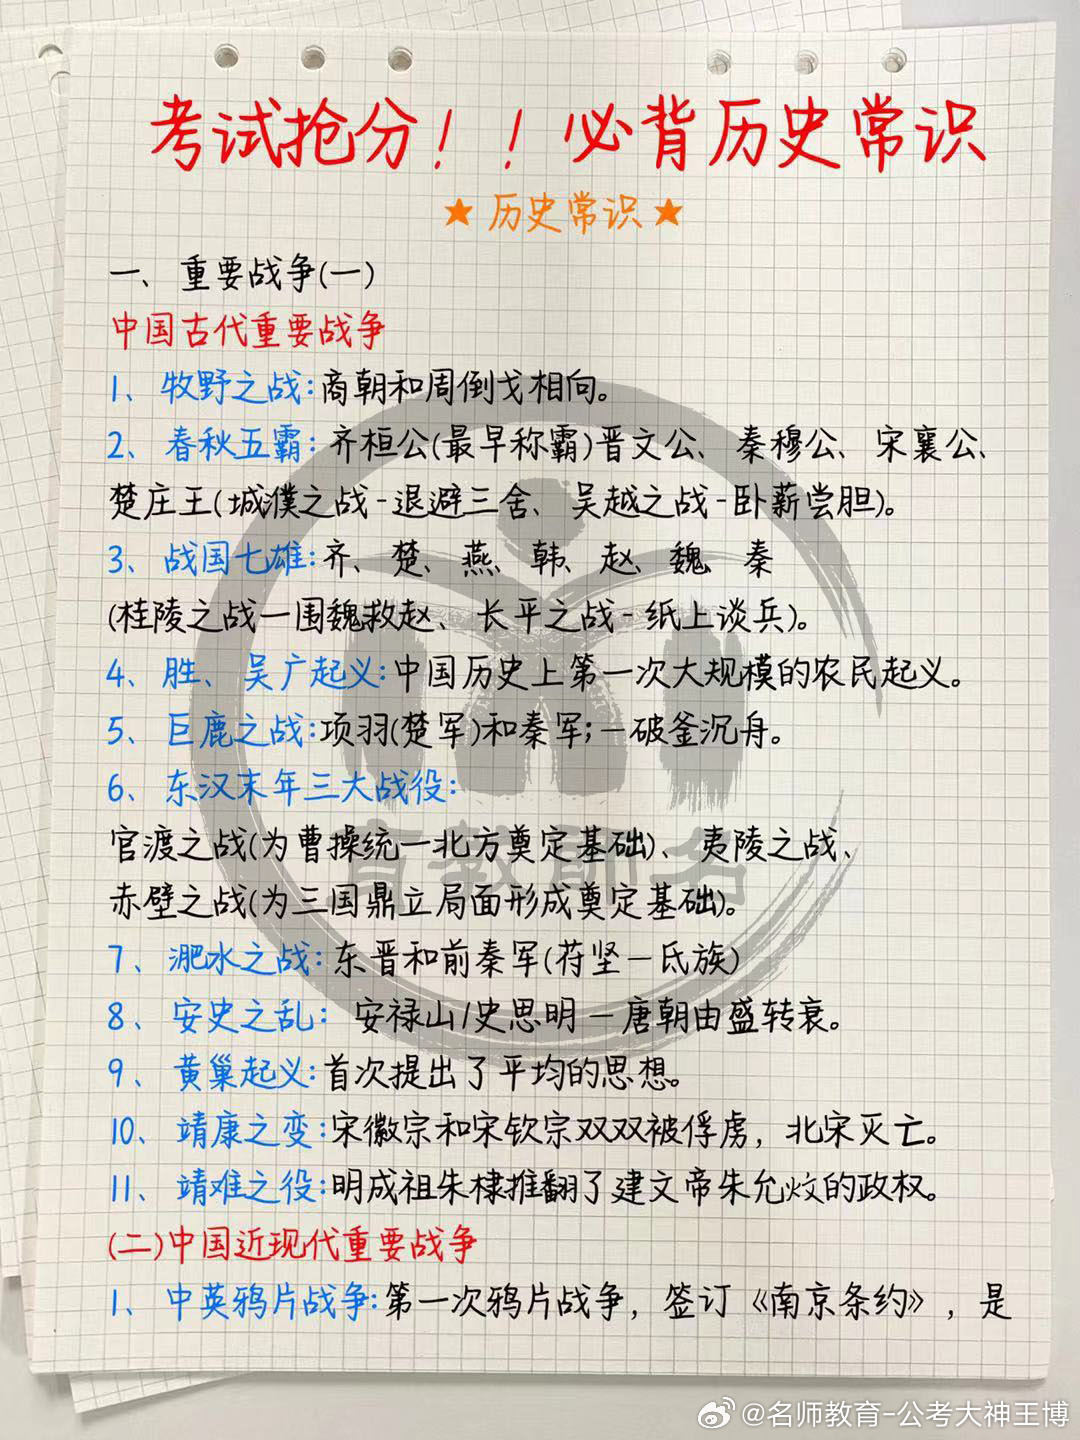 考试抢分！！必背历史常识
★历史常识★
一、重要战争(一)
中国古代重要战争
1、牧野之战:商朝和周倒戈相向。
2、春秋五霸:齐桓公(最早称霸)晋文公、秦穆公、宋襄公、
楚庄王(城濮之战-退避三舍、吴越之战-卧薪尝胆)。
3、战国七雄:齐、楚、燕、韩、赵、魏、秦
(桂陵之战一围魏救赵、长平之战-纸上谈兵)。
4、胜、吴广起义:中国历史上第一次大规模的农民起义。
5、巨鹿之战:项羽(楚军)和秦军;一破釜沉舟。
6、东汉末年三大战役:
官渡之战(为曹操统一北方奠定基础)、夷陵之战、
赤壁之战(为三国鼎立局面形成奠定基础)。
7、淝水之战:东晋和前秦军(苻坚一氐族)
8、安史之乱: 安禄山/史思明一唐朝由盛转衰。
9、黄巢起义:首次提出了平均的思想。
10、靖康之变:宋徽宗和宋钦宗双双被俘虏，北宋灭亡。
11、靖难之役:明成祖朱棣推翻了建文帝朱允炆的政权。
(二)中国近现代重要战争
1、中英鸦片战争:第一次鸦片战争，签订《南京条约》，是
育教师名
@名师教育-公考大神王博